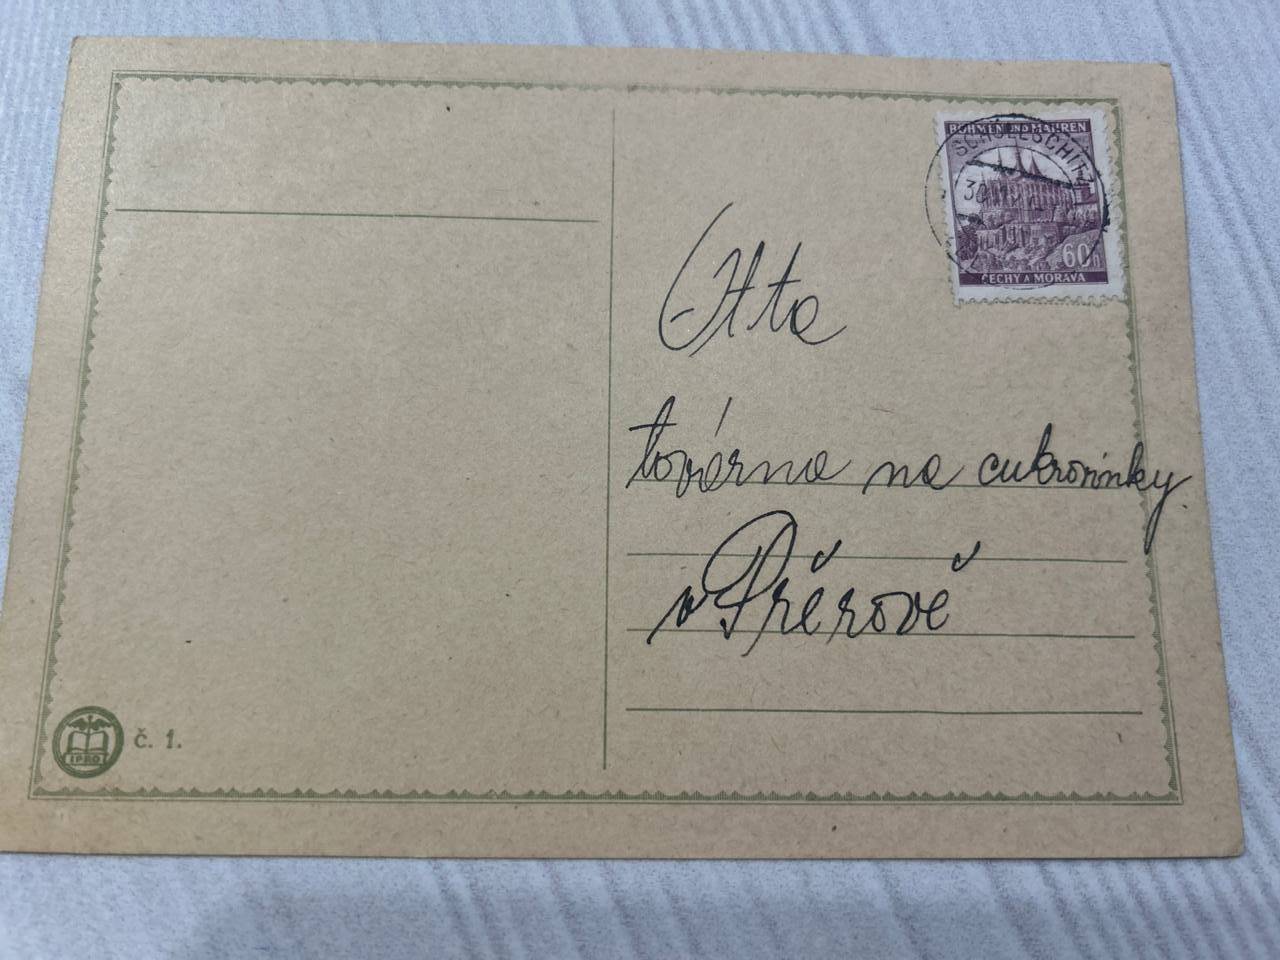 BÖHMEN UND MÄHREN
SCHÖLLSCHITZ
60h
ČECHY A MORAVA
Otta
továrna na cukrovinky
v Přerově
IPRO
č. 1.